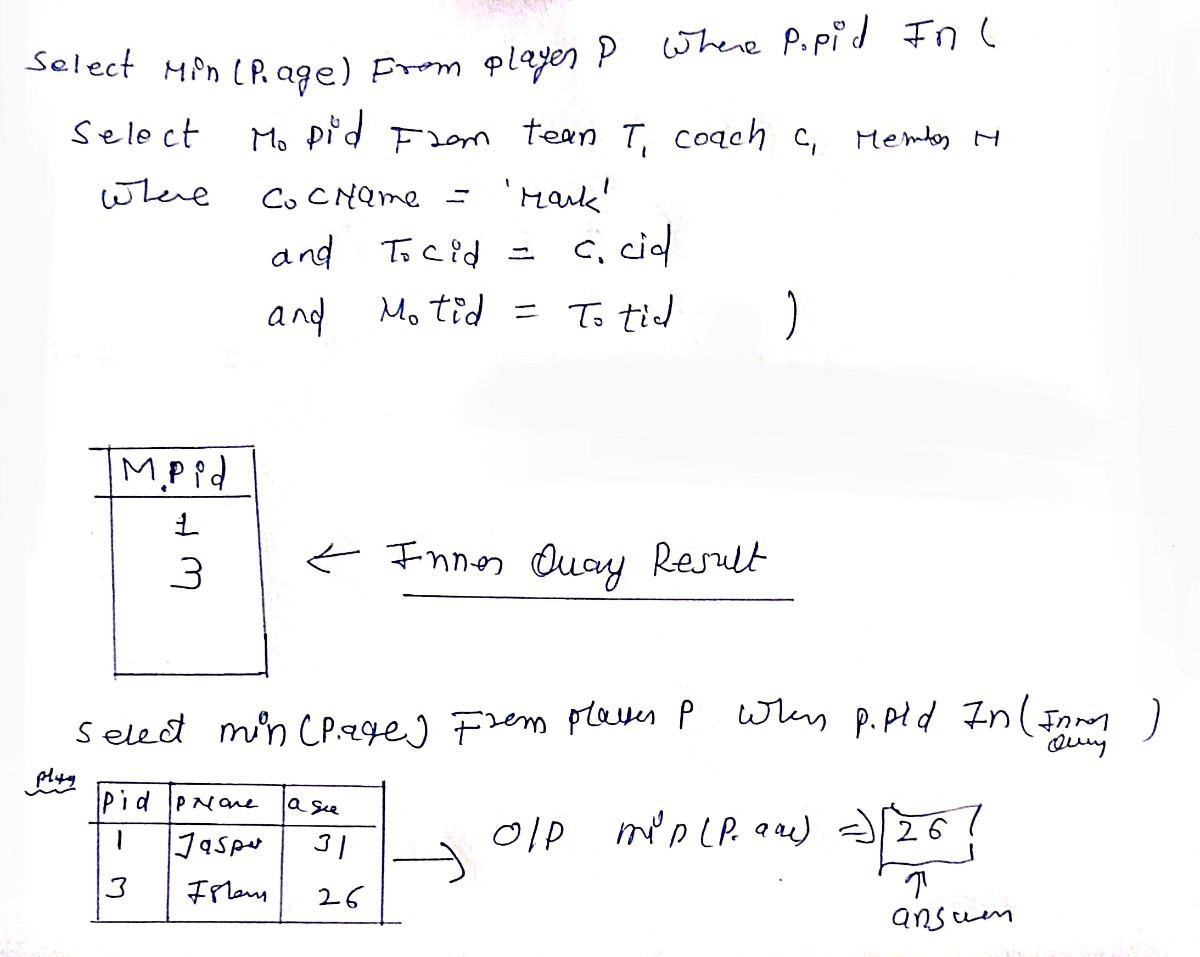 Select Min (P.age) From player P Where P.pid In (
Select M. pid From team T, coach C, Member M
Where C.CName = 'Mark'
and T.cid = C.cid
and M.tid = T.tid )
M.Pid
1
3
← Inner Query Result
Select min (P.age) From player P When p.pid In (Inner Query)
play
pid pName age
1 Jasper 31
3 26
→ O/P min (P.age) ⇒ 26
↑
answer